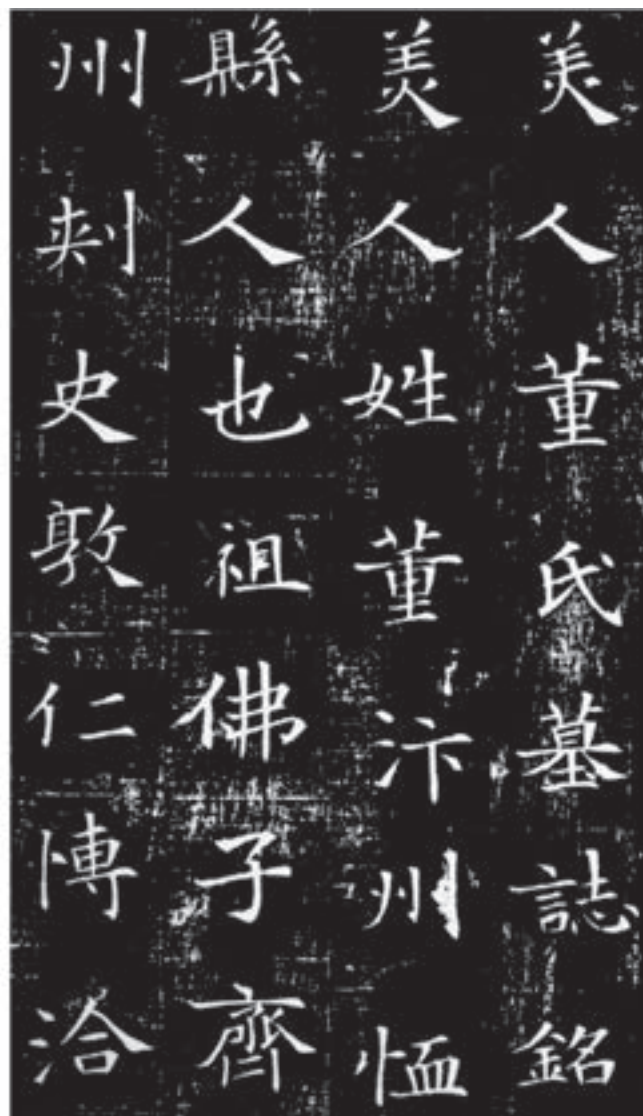 美人董氏墓誌銘
美人姓董汴州恤
縣人也祖佛子齊
州刾史敦仁愽洽